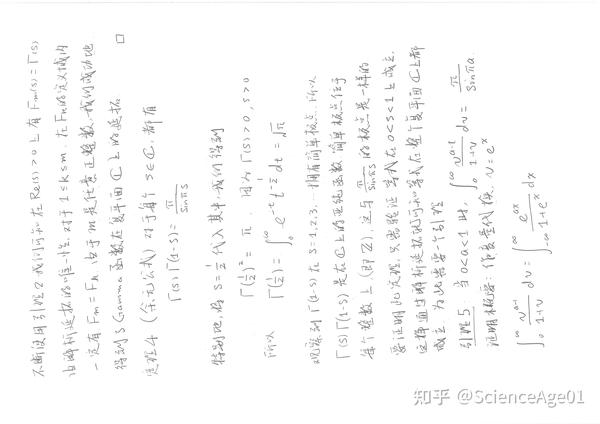 不断使用引理2我们可知在 Re(s)>0 上有 Fm(s)=Γ(s)
由解析延拓的唯一性, 对于 1≤k≤m. 在 Fk的定义域内
一定有 Fm = Fk 由于 m 是任意正整数, 我们成功地
得到了 Gamma 函数在复平面 ℂ 上的延拓 □
定理4 (余元公式) 对于每个 s∈ℂ, 都有
Γ(s)Γ(1-s)= π/sinπs
特别地, 将 s=1/2 代入其中, 我们得到
Γ(1/2)² = π . 因为 Γ(s)>0, s>0
所以 Γ(1/2) = ∫₀^∞ e^{-t} t^{-1/2} dt = √π
观察到 Γ(1-s) 在 s=1,2,3,… 拥有简单极点, 所以
Γ(s)Γ(1-s) 是在 ℂ 上的亚纯函数 简单极点位于
每个整数上 (即 ℤ). 这与 π/sinπs 的极点是一样的
要证明此定理, 只需验证 等式在 0<s<1 上成立.
这样通过解析延拓就可知等式在整个复平面 ℂ 上都
成立. 为此需要一个引理
引理5: 当 0<a<1 时, ∫₀^∞ v^{a-1}/(1+v) dv = π/sinπa.
证明概要: 作变量代换. v=e^x
∫₀^∞ v^{a-1}/(1+v) dv = ∫_{-∞}^∞ e^{ax}/(1+e^x) dx
知乎 @ScienceAge01